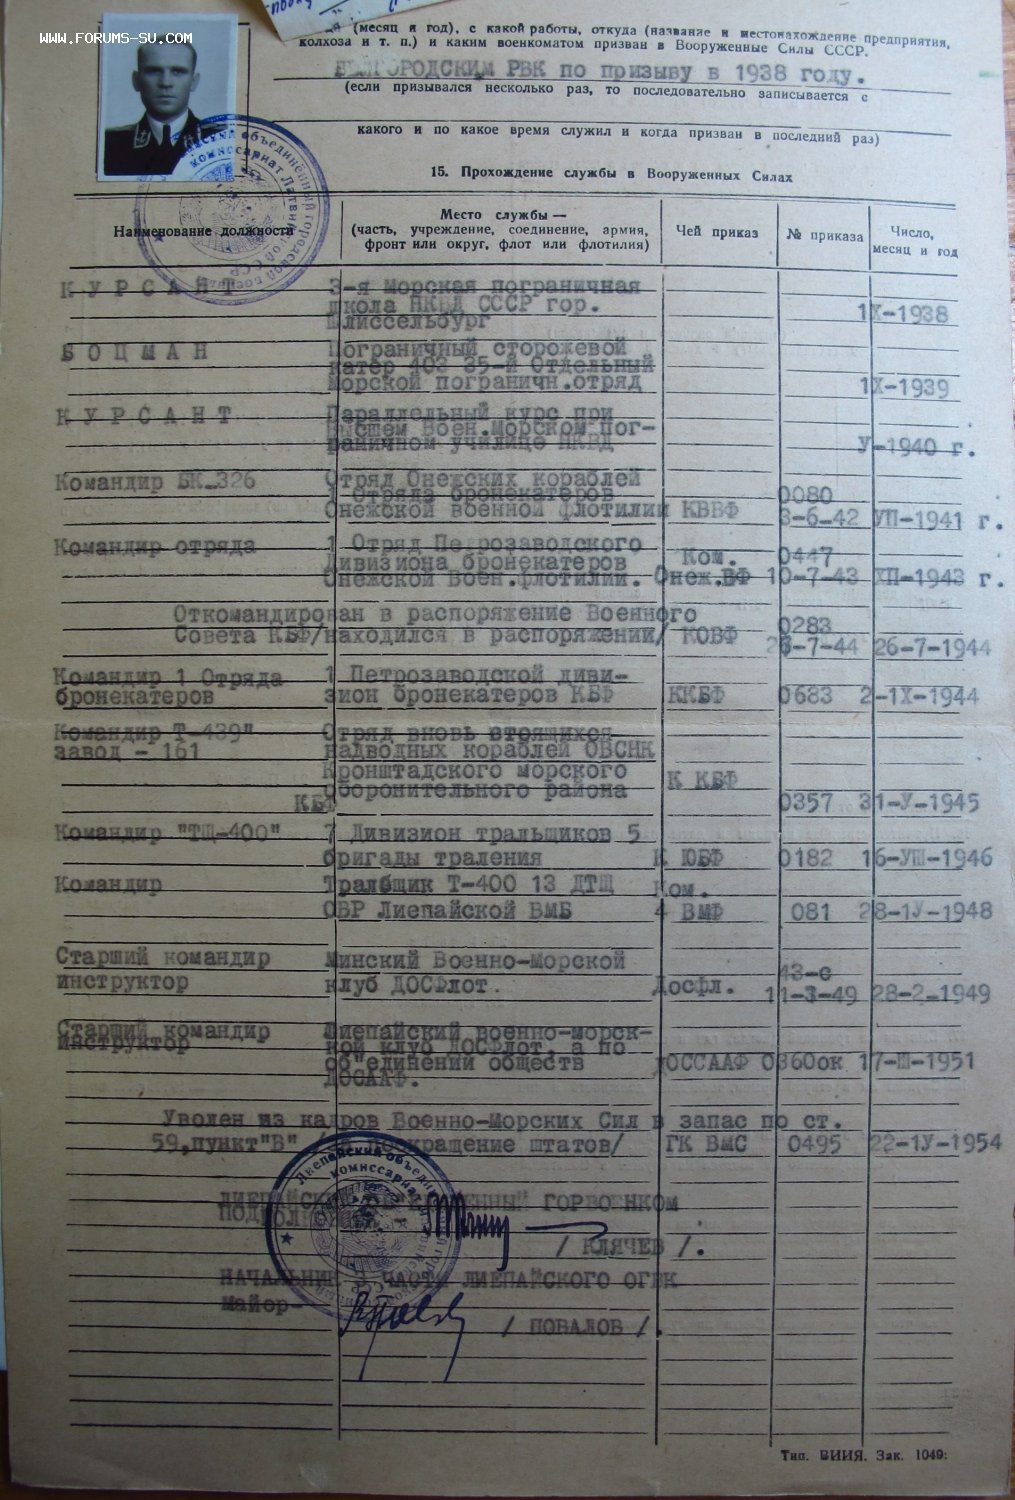 WWW.FORUMS-SU.COM
(месяц и год), с какой работы, откуда (название и местонахождение предприятия,
колхоза и т. п.) и каким военкоматом призван в Вооруженные Силы СССР.
БЕЛГОРОДСКИМ РВК по призыву в 1938 году.
(если призывался несколько раз, то последовательно записывается с
какого и по какое время служил и когда призван в последний раз)
15. Прохождение службы в Вооруженных Силах
Наименование должности
Место службы —
(часть, учреждение, соединение, армия,
фронт или округ, флот или флотилия)
Чей приказ
№ приказа
Число,
месяц и год
КУРСАНТ 3-я Морская пограничная
школа НКВД СССР гор.
Шлиссельбург 1Х-1938
БОЦМАН Пограничный сторожевой
катер 403 35-й Отдельный
морской погранични.отряд 1Х-1939
КУРСАНТ Параллельный курс при
высшем Воен.Морском пог-
раничном училище НКВД У-1940 г.
Командир БК-326 Отряд Онежских кораблей
1 Отряда бронекатеров 0080
Онежской военной флотилии КВВФ 3-6-42 УП-1941 г.
Командир отряда 1 Отряд Петрозаводского
Дивизиона бронекатеров Ком. 0447
Онежской Воен.флотилии. Онеж.ВФ 10-7-43 ХП-1943 г.
Откомандирован в распоряжение Военного
Совета КБФ/находился в распоряжении/ КОВФ 0283
-7-44 26-7-1944
Командир 1 Отряда 1 Петрозаводской диви-
бронекатеров зион бронекатеров КБФ ККБФ 0683 2-1Х-1944
Командир Т-439" Отряд вновь стоящихся
завод - 161 надводных кораблей ОВСНК
Кронштадского морского К КБФ
оборонительного района
КБФ 0357 31-У-1945
Командир "ТЩ-400" 7 Дивизион тральщиков 5
бригады траления К ЮБФ 0182 16-УШ-1946
Командир Тралбщик Т-400 13 ДТЩ Ком.
ОВР Лиепайской ВМБ 4 ВМФ 081 28-1У-1948
Старший командир Минский Военно-Морской
инструктор клуб ДОСФлот. Досфл. 43-с
11-3-49 28-2-1949
Старший командир Лиепайский военно-морск-
инструктор кой клуб ДОСФлот, а по
об"единении обществ ДОССААФ 0360ок 17-Ш-1951
ДОСААФ.
Уволен из кадров Военно-Морских Сил в запас по ст.
59,пункт"В" /по сокращение штатов/ ГК ВМС 0495 22-1У-1954
ЛИЕПАЙСКИЙ ОБЪЕДИНЕННЫЙ ГОРВОЕНКОМ
ПОДПОЛКОВНИК
/ КЛЯЧЕВ /.
НАЧАЛЬНИК ЧАСТИ ЛИЕПАЙСКОГО ОГВК
Майор-
/ ПОВАЛОВ /.
Тип. ВИИЯ. Зак. 1049: